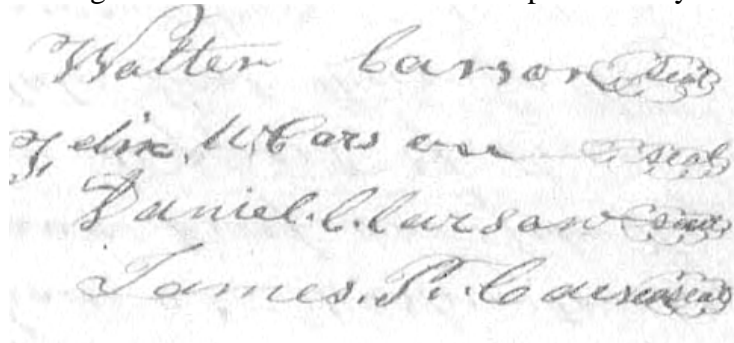 Walter Carson seal
Felix W. Carson seal
Daniel. C. Carson seal
James. R. Carson seal